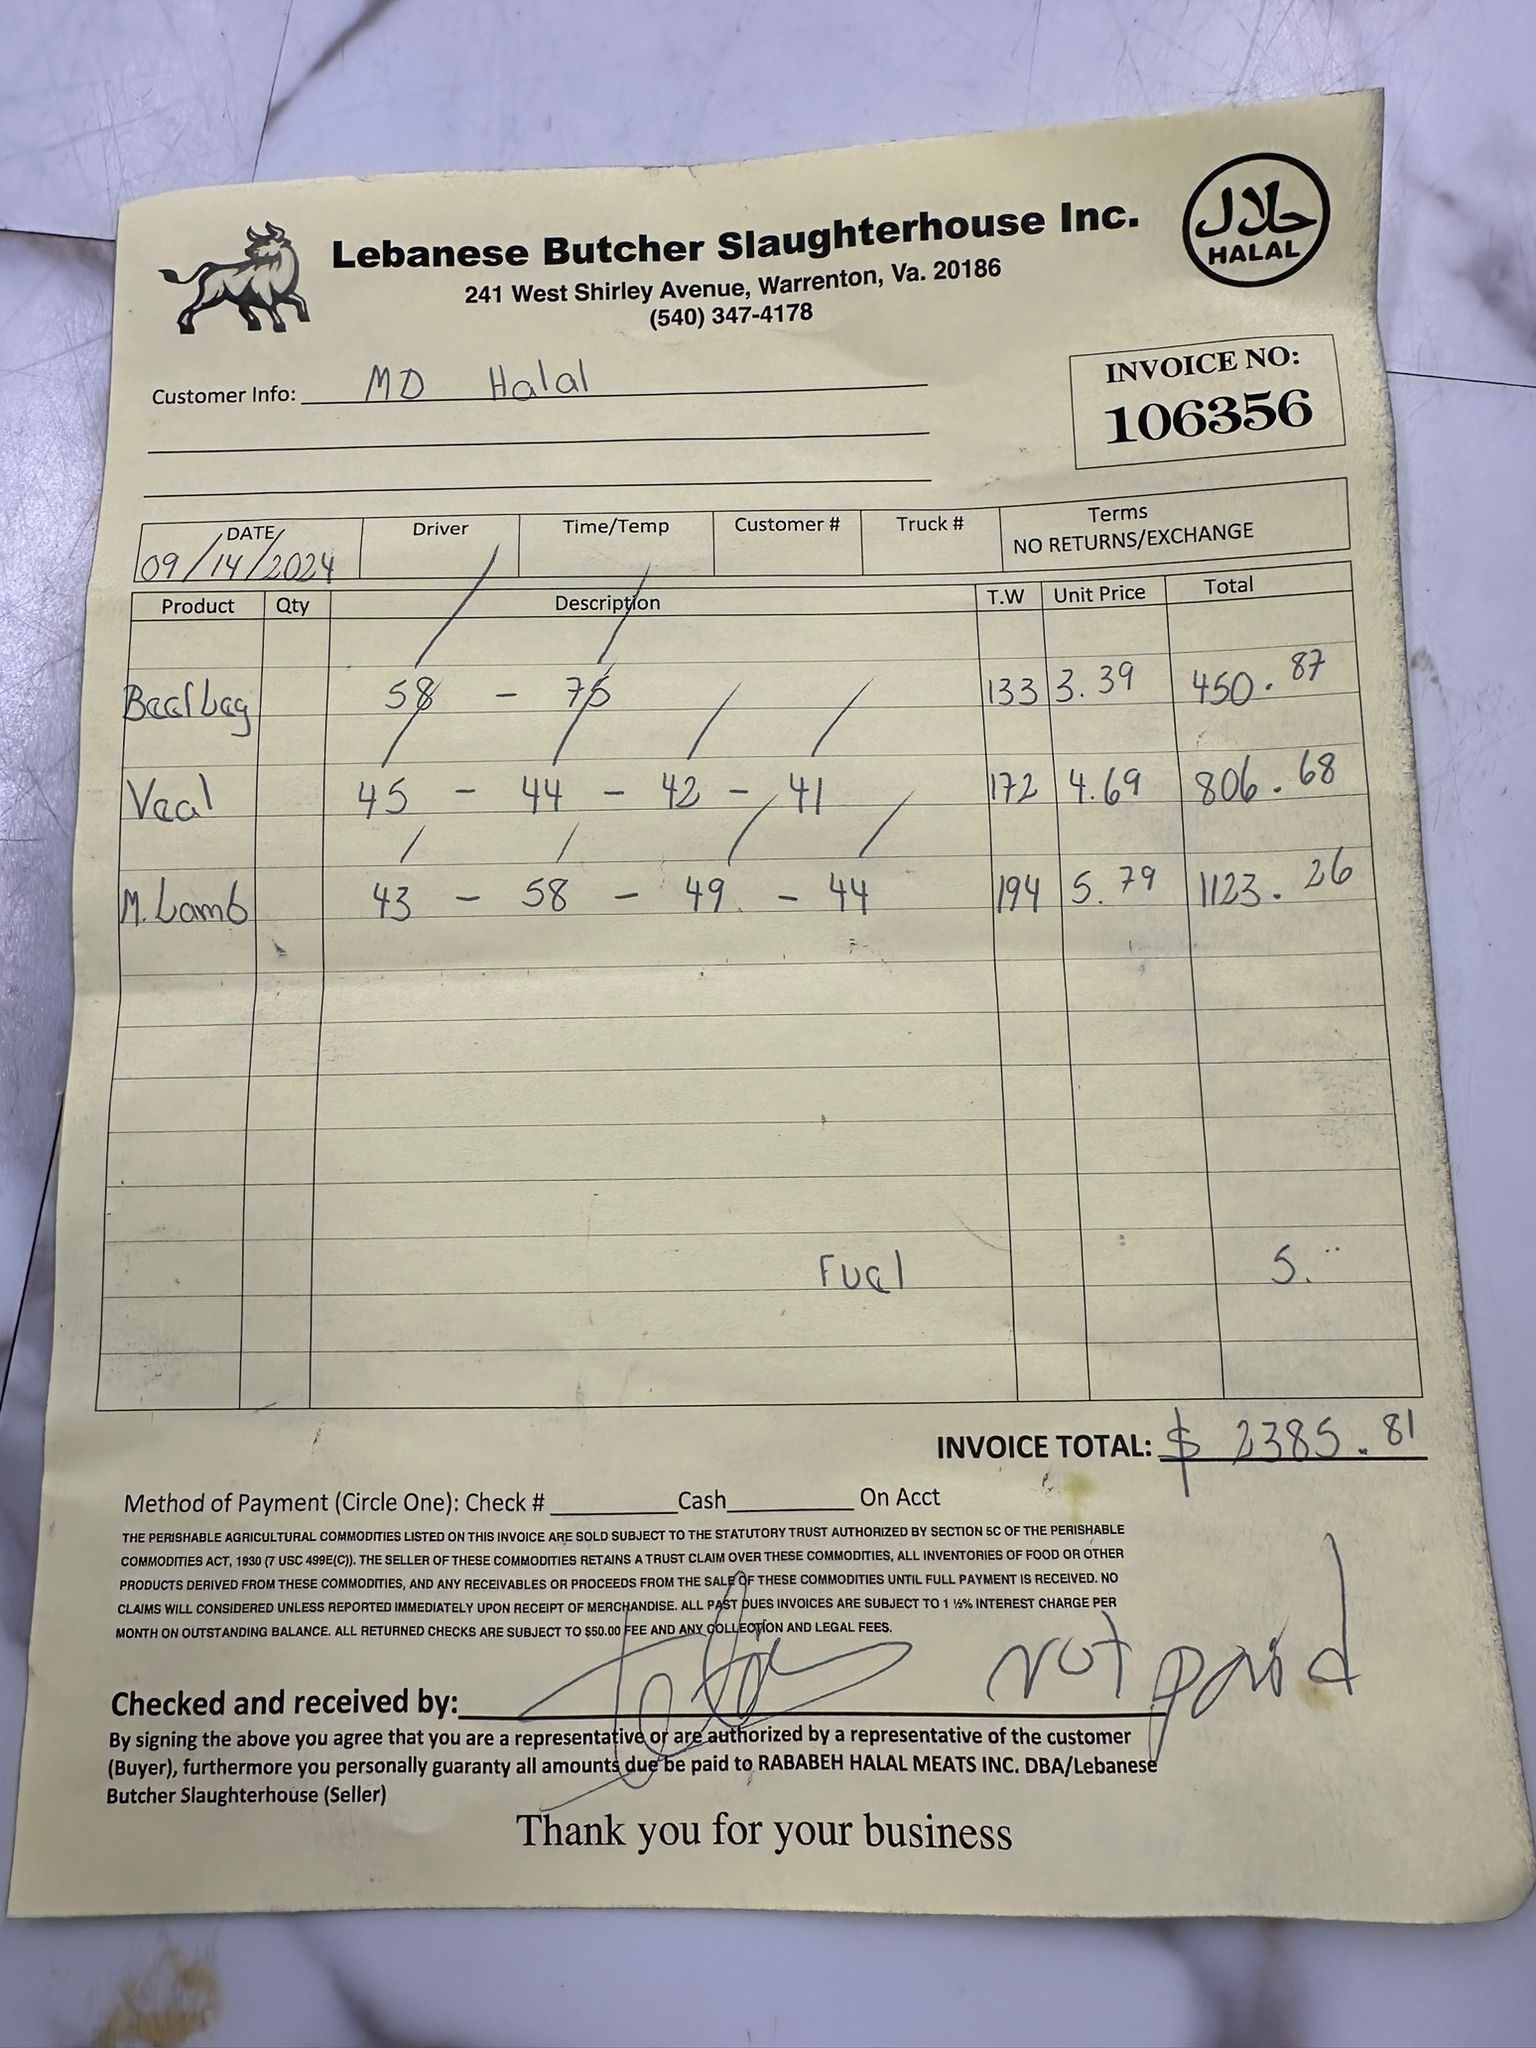 Lebanese Butcher Slaughterhouse Inc.
241 West Shirley Avenue, Warrenton, Va. 20186
(540) 347-4178
حلال
HALAL
Customer Info: MD Halal
INVOICE NO:
106356
DATE Driver Time/Temp Customer # Truck # Terms
09/14/2024 NO RETURNS/EXCHANGE
Product Qty Description T.W Unit Price Total
Beef Leg 58 - 75 133 3.39 450.87
Veal 45 - 44 - 42 - 41 172 4.69 806.68
M. Lamb 43 - 58 - 49 - 44 194 5.79 1123.26
Fuel 5.
INVOICE TOTAL: $ 2385.81
Method of Payment (Circle One): Check # Cash On Acct
THE PERISHABLE AGRICULTURAL COMMODITIES LISTED ON THIS INVOICE ARE SOLD SUBJECT TO THE STATUTORY TRUST AUTHORIZED BY SECTION 5C OF THE PERISHABLE
COMMODITIES ACT, 1930 (7 USC 499E(C)). THE SELLER OF THESE COMMODITIES RETAINS A TRUST CLAIM OVER THESE COMMODITIES, ALL INVENTORIES OF FOOD OR OTHER
PRODUCTS DERIVED FROM THESE COMMODITIES, AND ANY RECEIVABLES OR PROCEEDS FROM THE SALE OF THESE COMMODITIES UNTIL FULL PAYMENT IS RECEIVED. NO
CLAIMS WILL CONSIDERED UNLESS REPORTED IMMEDIATELY UPON RECEIPT OF MERCHANDISE. ALL PAST DUES INVOICES ARE SUBJECT TO 1 ½% INTEREST CHARGE PER
MONTH ON OUTSTANDING BALANCE. ALL RETURNED CHECKS ARE SUBJECT TO $50.00 FEE AND ANY COLLECTION AND LEGAL FEES.
not paid
Checked and received by:
By signing the above you agree that you are a representative or are authorized by a representative of the customer
(Buyer), furthermore you personally guaranty all amounts due be paid to RABABEH HALAL MEATS INC. DBA/Lebanese
Butcher Slaughterhouse (Seller)
Thank you for your business